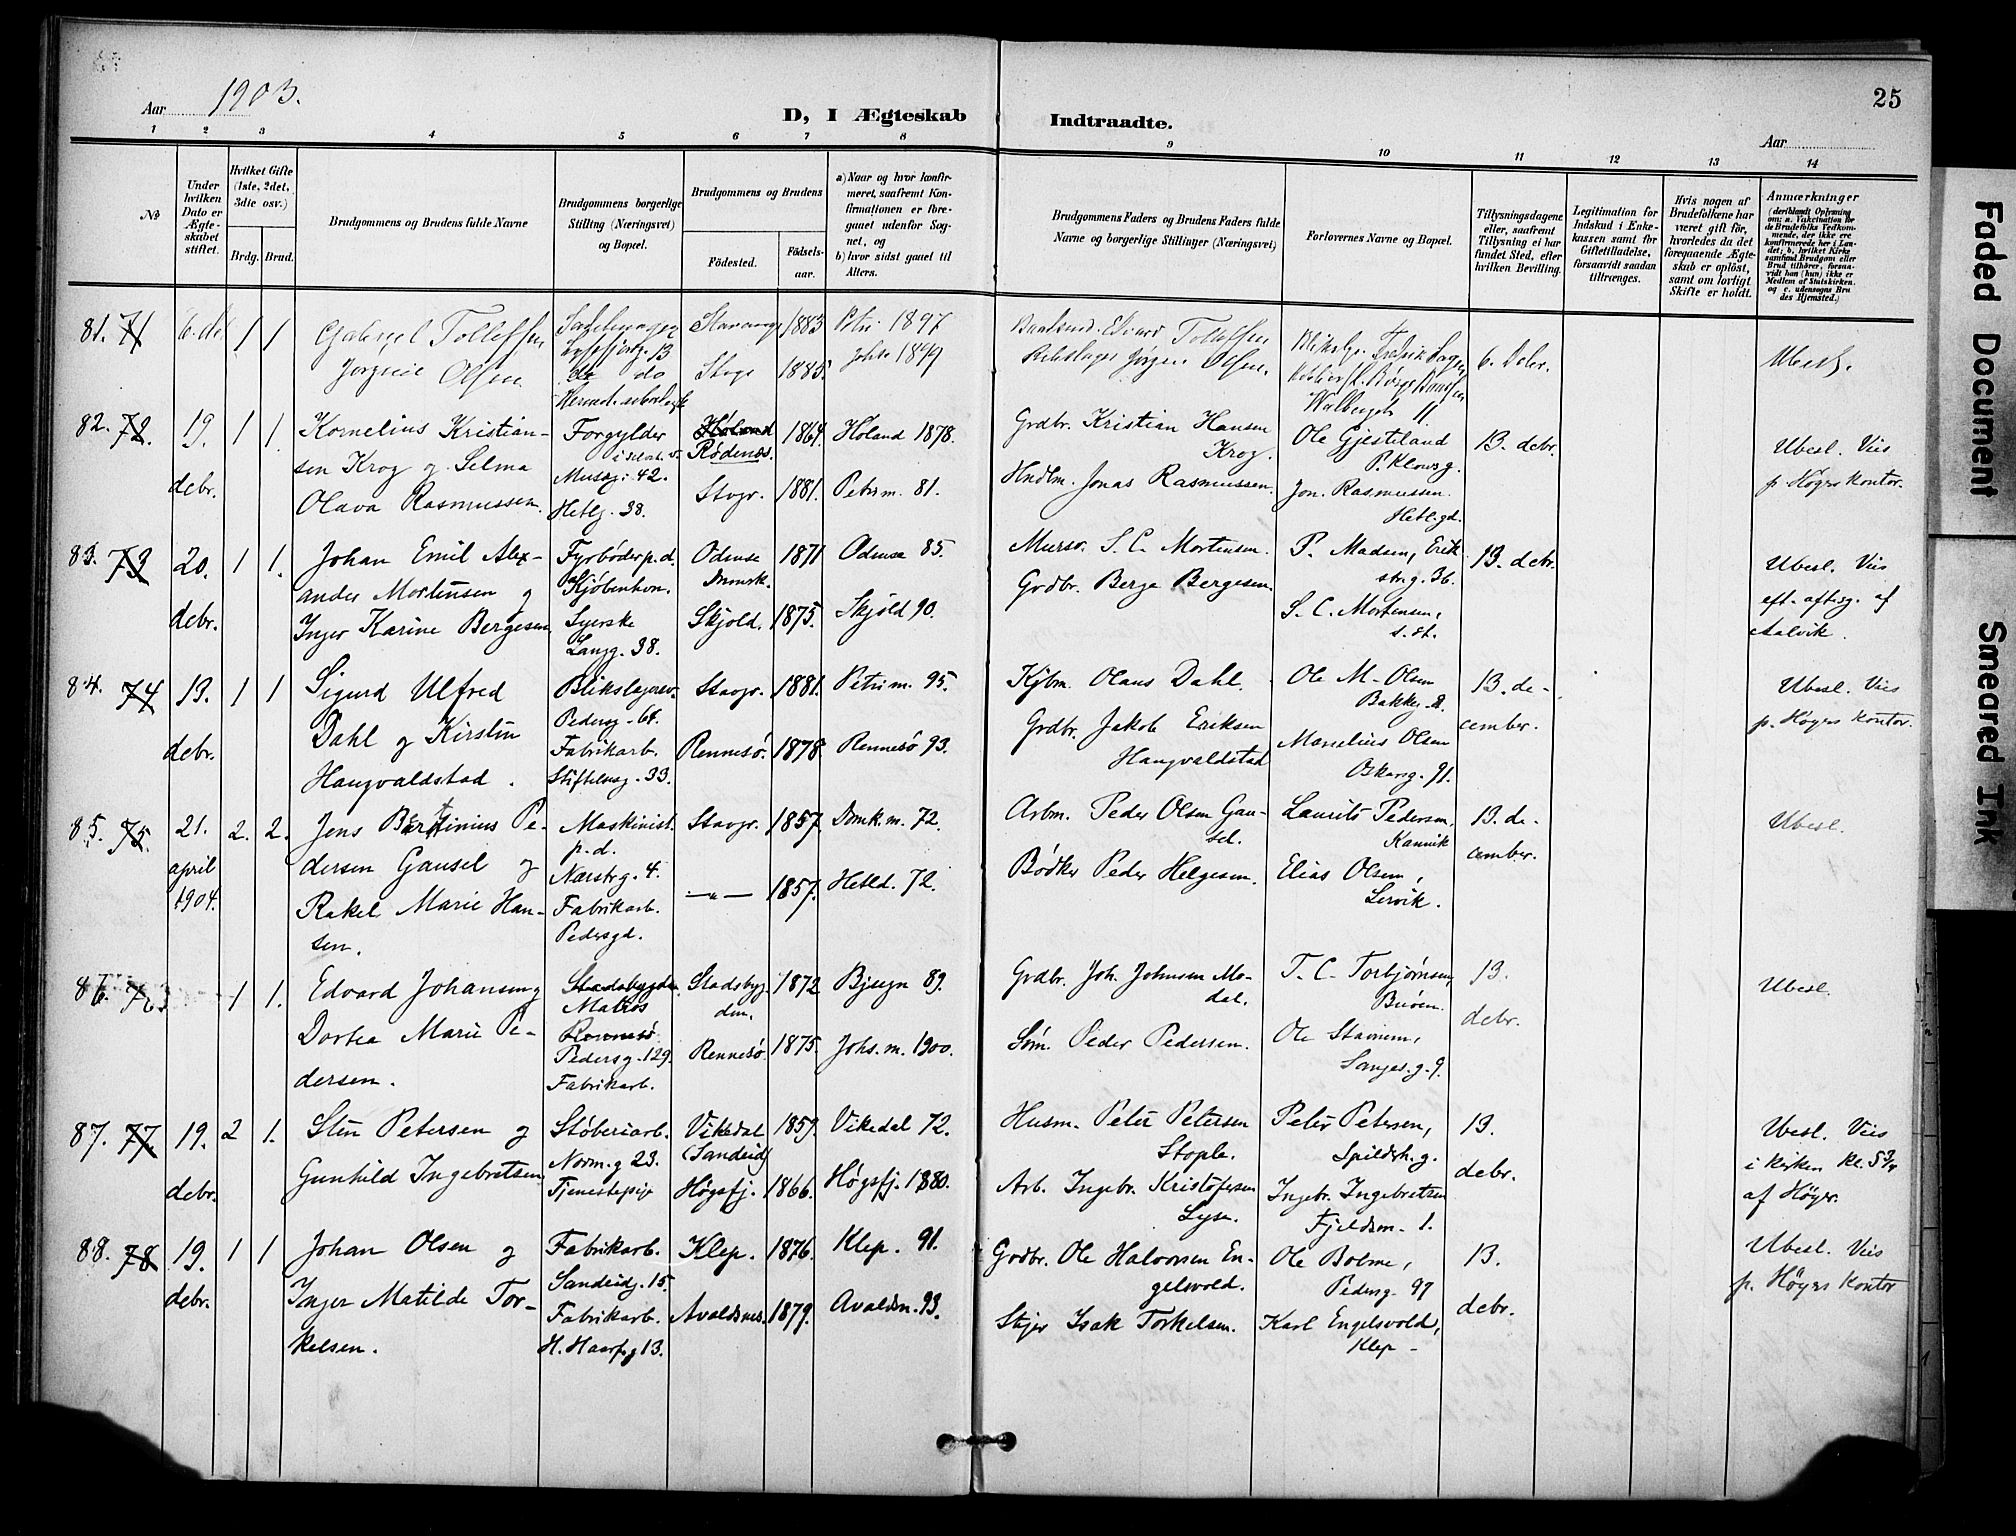 Aar 1903.
D, I Ægteskab Indtraadte.
25
Aar
1 2 3 4 5 6 7 8 9 10 11 12 13 14
No
Under hvilken Dato er Ægteskabet stiftet.
Hvilket Gifte (1ste, 2det, 3die osv.)
Brdg. Brud.
Brudgommens og Brudens fulde Navne
Brudgommens borgerlige Stilling (Næringsvei) og Bopæl.
Brudgommens og Brudens
Födested. Födselsaar.
a) Naar og hvor konfirmeret, saafremt Konfirmationen er foregaaet udenfor Sognet, og
b) hvor sidst gaaet til Alters.
Brudgommens Faders og Brudens Faders fulde Navne og borgerlige Stillinger (Næringsvei)
Forlovernes Navne og Bopæl.
Tillysningsdagene eller, saafremt Tillysning ei har fundet Sted, efter hvilken Bevilling.
Legitimation for Indskud i Enkekassen samt for Giftetilladelse, forsaavidt saadan tiltrænges.
Hvis nogen af Brudefolkene har været gift för, hvorledes da det foregaaende Ægteskab er oplöst, samt om lovligt Skifte er holdt.
Anmærkninger
(deriblandt Oplysning om: a. Vakcination for de Brudefolks Vedkommende, der ikke ere konfirmerede her i Landet; b. hvilket Kirkesamfund Brudgom eller Brud tilhörer, forsaavidt han (hun) ikke er Medlem af Statskirken, og c. udensogns Brudes Hjemsted.)
81. 71 1 1
Gabriel Tollefsen
Olsen
13
do
1883
1885.
1897
1899
Tollefsen
Olsen
11
6. Debr.
Ubesl.
82. 72. 19. debr. 1 1.
Kornelius Kristian-
sen Krog og Selma
Olava Rasmussen.
Forgylder
Museg. 42.
Hetlg. 38.
Höland
Rödenæs.
Stavgr.
1864.
1881.
Höland 1878.
Petri m. 81.
Grdbr. Kristian Hansen
Krog.
Hndlm. Jonas Rasmussen.
Ole Gjesteland
P. Klowsg.
Jon. Rasmussen.
Hetl. gd.
13. debr.
Ubesl. Viis
p. Höyers kontor.
83. 73 20. debr. 1 1.
Johan Emil Alex-
ander Mortensen og
Inger Karine Bergesen
Fyrböder p. d.
Kjöbenhavn.
Syerske
Langg. 38.
Odense
Danmk.
Skjold.
1871
1875.
Odense 85.
Skjold 90.
Murer. S. C. Mortensen.
Grdbr. Berge Bergesen.
P. Madsen, Erik-
strg. 36.
S. C. Mortensen,
s. st.
13. debr.
Ubesl. Viis
eft. aftg. af
Aalvik.
84. 74 13. debr. 1 1
Sigurd Ulfred
Dahl og Kirstin
Haugvaldstad.
Blikslagersv.
Pedersg. 64.
Fabrikarb.
Stiftelsesg. 33.
Stavgr.
Rennesö.
1881.
1878.
Petri m. 95.
Rennesö 93.
Kjbm. Olaus Dahl.
Grdbr. Jakob Eriksen
Haugvaldstad
Ole M. Olsen
Bakkeg. 2.
Mareluis Olsen
Oskarsg. 91.
13. de-
cember.
Ubesl. Viis
p. Höyers kontor.
85. 75. 21. april 1904. 2. 2.
Jens Bertinius Pe-
dersen Gausel og
Rakel Marie Han-
sen.
Maskinist.
p. d.
Nærstrg. 4.
Fabrikarb.
Pedersgd.
Stavgr.
— " —
1857
1857.
Domk. m. 72.
Hetld. 72.
Arbm. Peder Olsen Gau-
sel.
Bödker Peder Helgesen.
Laurits Pedersen,
Kannik
Elias Olsen,
Lervik.
13. de-
cember.
Ubesl.
86. 76 1 1.
Edvard Johansen og
Dortea Marie Pe-
dersen.
Stadsbygden.
Matros
Rennesö
Pedersg. 129
Fabrikarb.
Stadsbyg-
den.
Rennesö.
1872
1875.
Bjugn 89.
Johs. m. 1900.
Grdbr. Joh. Johnsen Mo-
dal.
Söm. Peder Pedersen.
T. C. Torbjörnsen,
Buöen.
Ole Stavnem,
9.
13. debr.
Ubesl.
87. 77. 19. debr. 2 1.
Sten Petersen og
Gunhild Ingebretsen
Stöberiarb.
Norm. g 23.
Tjenestepige
Vikedal
(Sandeid)
Högsfj.
1859.
1866.
Vikedal 72.
Högsfj. 1880.
Husm. Peter Petersen
Stople.
Arb. Ingebr. Kristofersen
Lyse.
Peter Petersen,
Spildrh. g.
Ingebr. Ingebretsen
Fjeldsm. 1.
13. debr.
Ubesl. Viis
i kirken kl. 5 3/4
af Höyer.
88. 78 19. debr. 1 1
Johan Olsen og
Inger Matilde Tor-
kelsen.
Fabrikarb.
Sandeidg. 15.
Fabrikarb.
H. Haarf. g 13.
Klep.
Avaldsnes.
1876.
1879.
Klep. 91.
Avaldsn. 93.
Grdbr. Ole Halvorsen En-
gelsvold.
Isak Torkelsen.
Ole Bolme,
Pedersg. 97
Karl Engelsvold,
Klep -
13. debr.
Ubesl. Viis
p. Höyers kontor
Faded Document
Smeared Ink